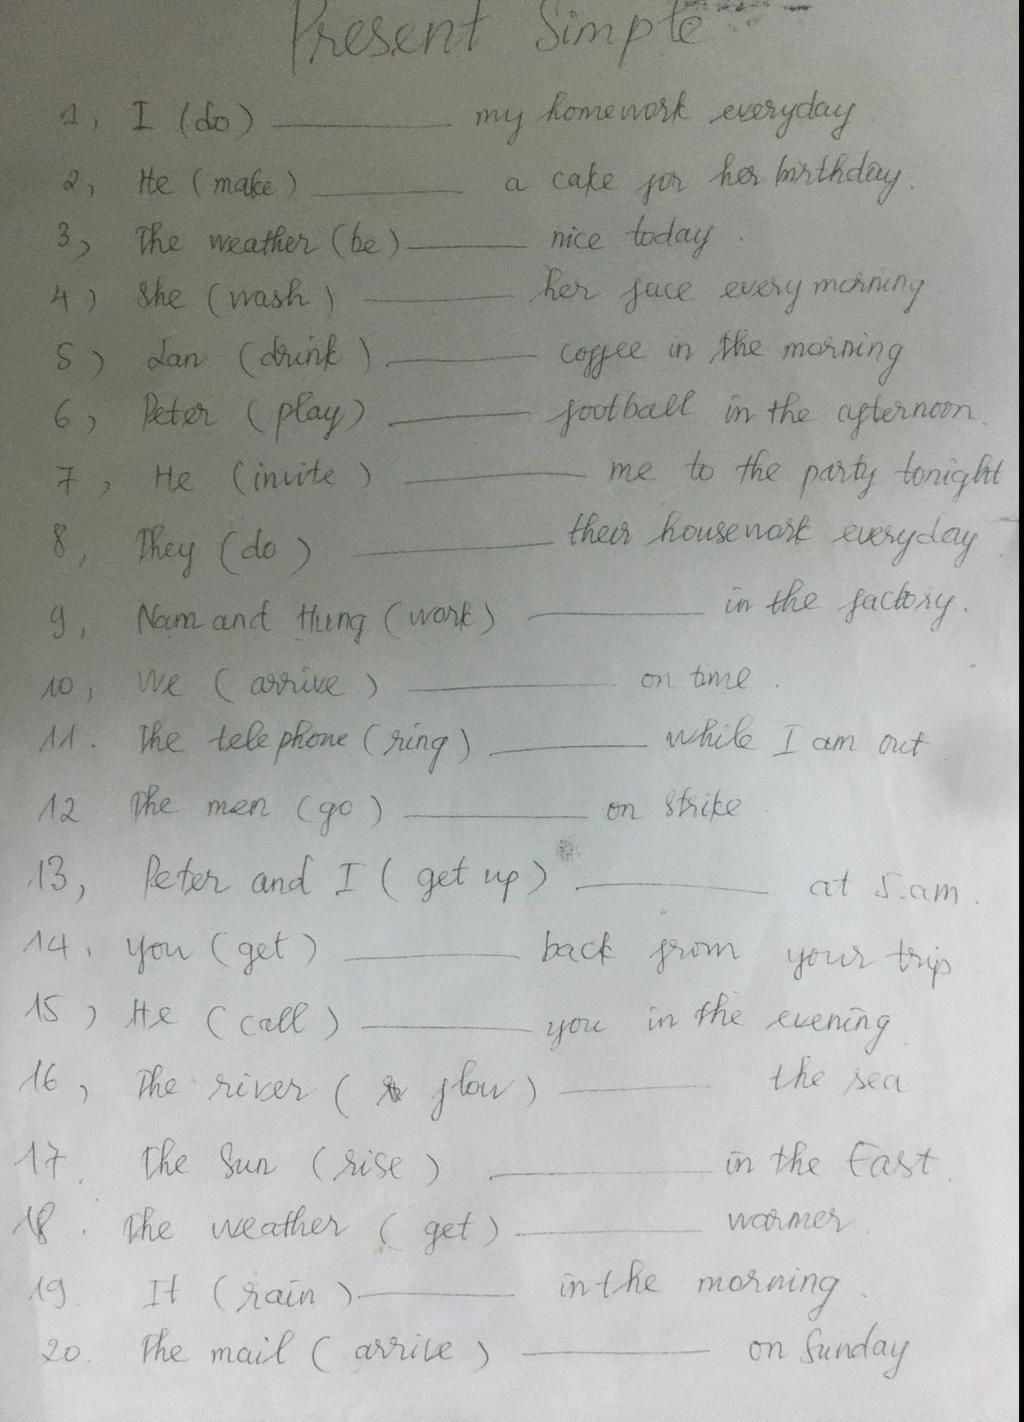 Present Simple
1, I (do) ________ my homework everyday
2, He (make) ________ a cake for her birthday.
3, The weather (be) ________ nice today.
4) She (wash) ________ her face every morning
5) Lan (drink) ________ coffee in the morning
6, Peter (play) ________ football in the afternoon.
7, He (invite) ________ me to the party tonight
8, They (do) ________ their housework everyday
9, Nam and Hung (work) ________ in the factory.
10, We (arrive) ________ on time.
11. The telephone (ring) ________ while I am out
12. The men (go) ________ on strike
13, Peter and I (get up) ________ at 5.am.
14, you (get) ________ back from your trip
15, He (call) ________ you in the evening
16, The river (flow) ________ the sea
17. The Sun (rise) ________ in the East.
18. The weather (get) ________ warmer.
19. It (rain) ________ in the morning.
20. The mail (arrive) ________ on Sunday